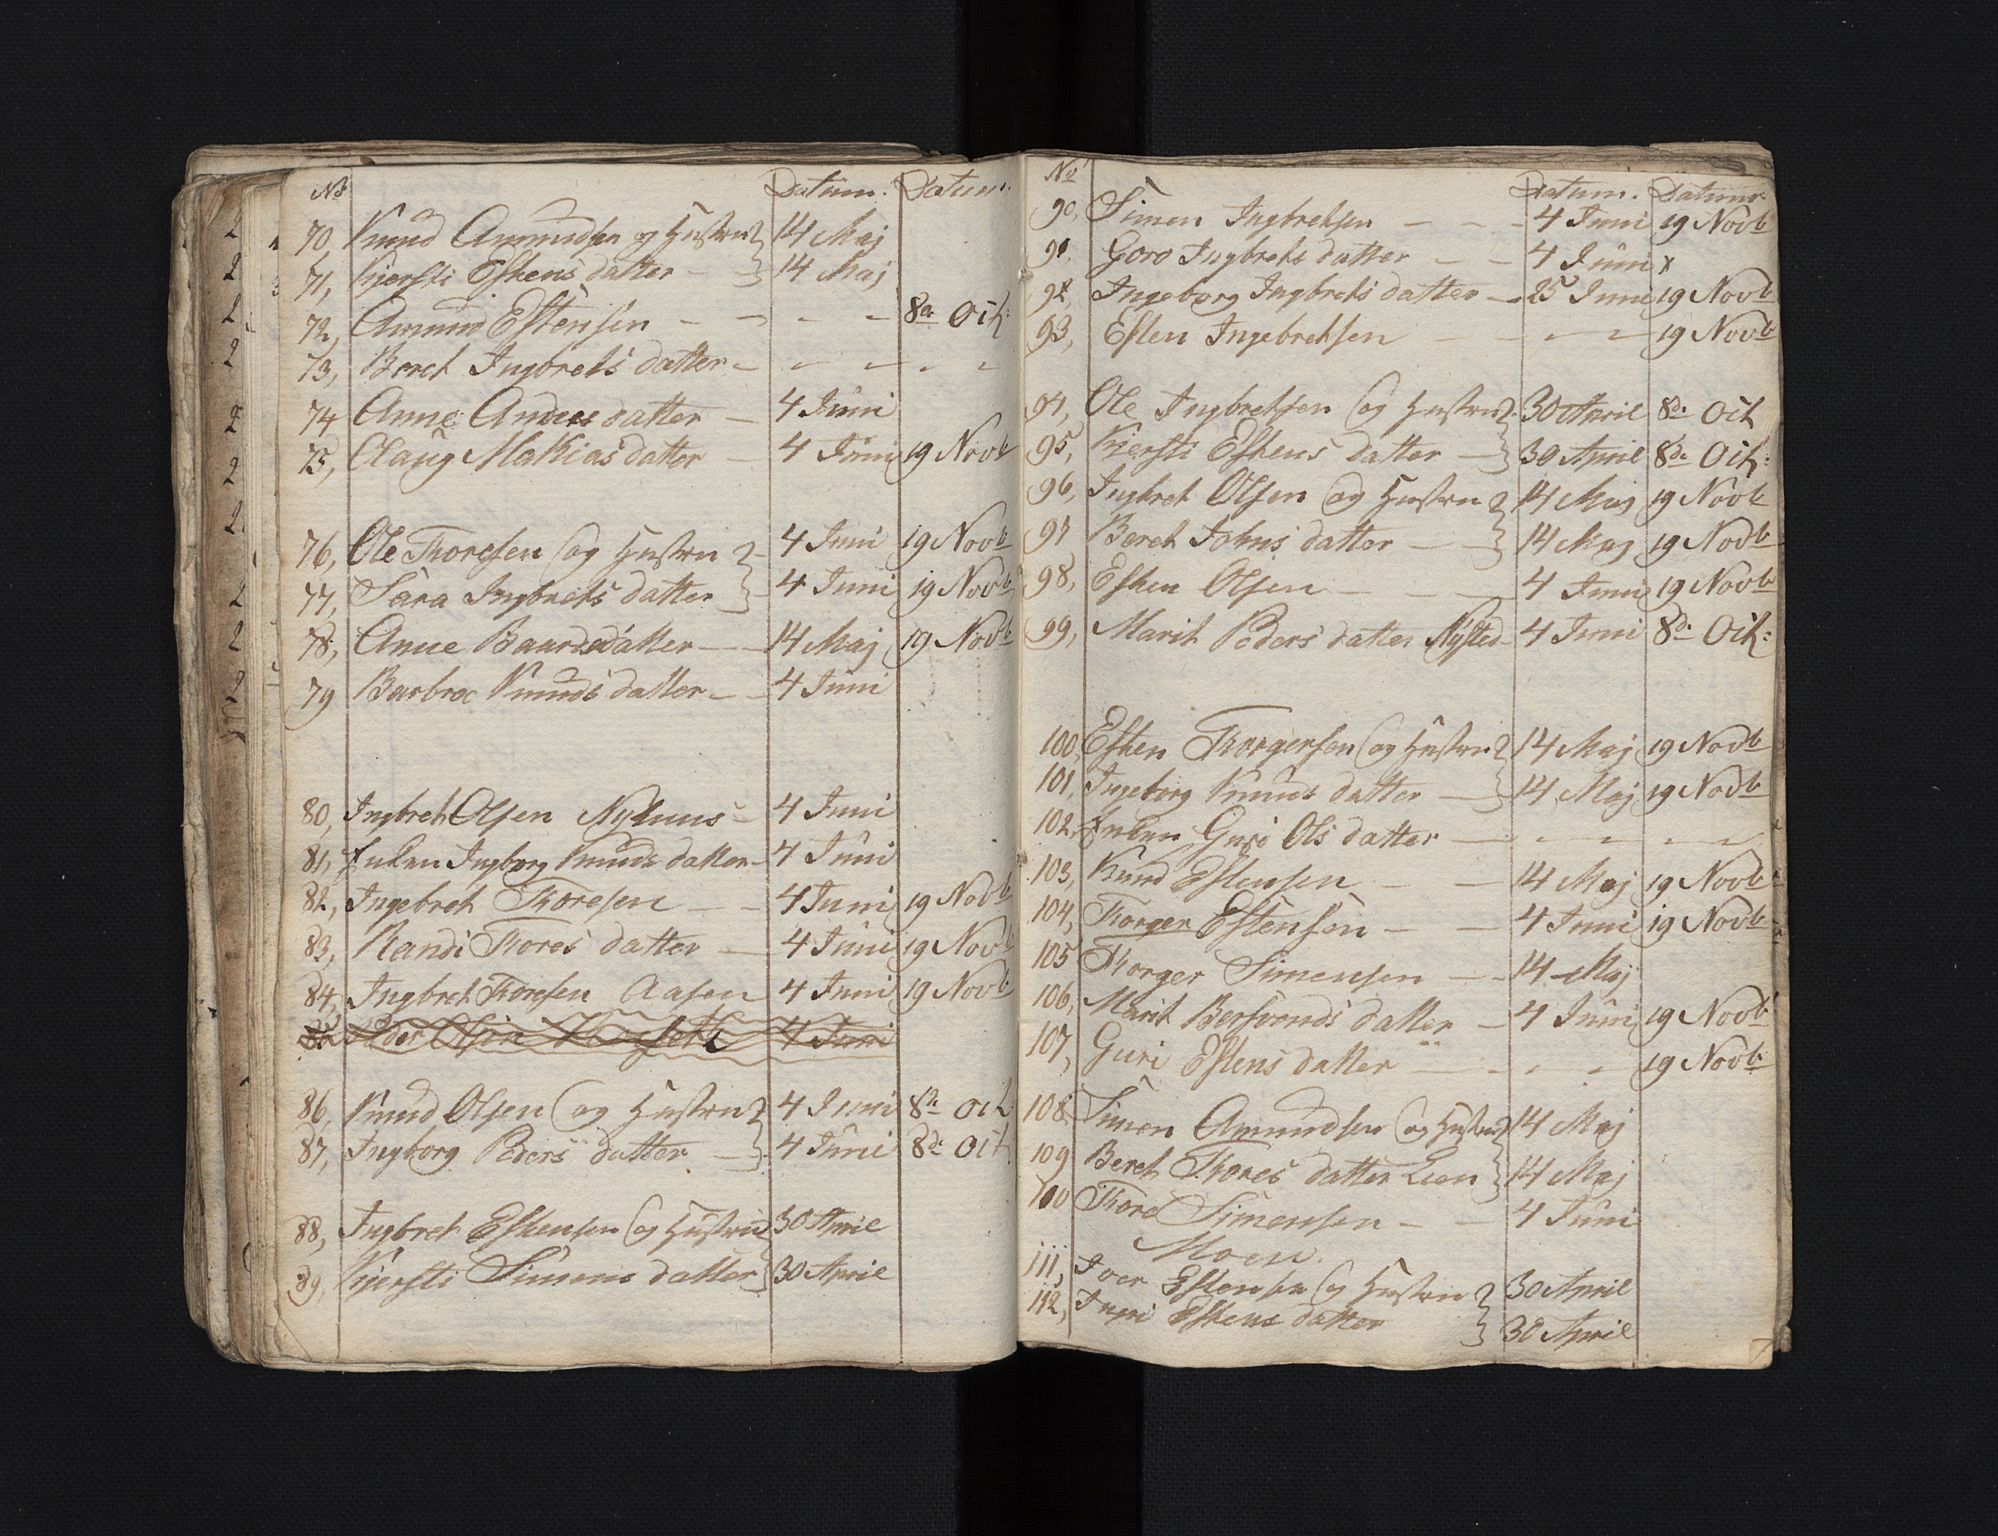 No Datum. Datum.
70, Knud Amundsen og Hustru 14 Maj
71, Kiersti Estens datter 14 Maj
72, Amund Estensen - - - - 8de Oct:
73, Beret Ingbrets datter - - - - -
74 Anne Anders datter - 4 Juni
75, Olaug Mathias datter - 4 Juni 19 Novb
76, Ole Thoresen (og Hustru 4 Juni 19 Novb
77, Sara Ingbrets datter 4 Juni 19 Novb
78, Anne Baards datter - - 14 Maj 19 Novb
79 Barbroe Knuds datter - - 4 Juni
80, Ingbret Olsen Nyhuus - 4 Juni
81, Enken Ingborg Knuds datter - 4 Juni
82, Ingebret Thoresen - - 4 Juni 19 Novb
83, Randi Thores datter - 4 Juni 19 Novb
84, Ingbret Thoresen Aasen 4 Juni 19 Novb
Olsen 4 Juni
86, Knud Olsen (og Hustru 4 Juni 8de Oct.
87, Ingborg Peders datter - 4 Juni 8de Oct.
88, Ingbret Estensen (og Hustru 30 April
89, Kjersti Simens datter 30 April
No Datum. Datum.
90, Simen Ingbretsen - - - 4 Juni 19 Novb
91, Goro Ingbrets datter - - 4 Juni x
92, Ingeborg Ingbrets datter - 25 Juni 19 Novb
93, Esten Ingebretsen - - - - 19 Novb
94, Ole Ingbretsen (og Hustru 30 April 8de Oct
95, Kjersti Estens datter - 30 April 8de Oct:
96, Ingbret Olsen (og Hustru 14 Maj 19 Novb
97 Beret Johns datter - - 14 Maj 19 Novb
98, Esten Olsen - - - 4 Juni 19 Novb
99, Marit Peders datter Nysted - 4 Juni 8de Oct:
100, Esten Thorgersen (og Hustru 14 Maj 19 Novb
101, Ingeborg Knuds datter - 14 Maj 19 Novb
102, Enken Guri Ols datter - - - - - -
103, Knud Estensen - - 14 Maj 19 Novb
104, Thorger Estensen - - 4 Juni 19 Novb
105 Thorger Simensen - - 14 Maj
106, Marit Bersvends datter - 4 Juni 19 Novb
107, Guri Estens datter - - - 19 Novb
108, Simen Amundsen (og Hustru 14 Maj
109 Beret Thores datter Lien 14 Maj
110 Thore Simensen - - 4 Juni
Moen.
111, Iver Estensen (og Hustru 30 April
112, Ingri Estens datter 30 April